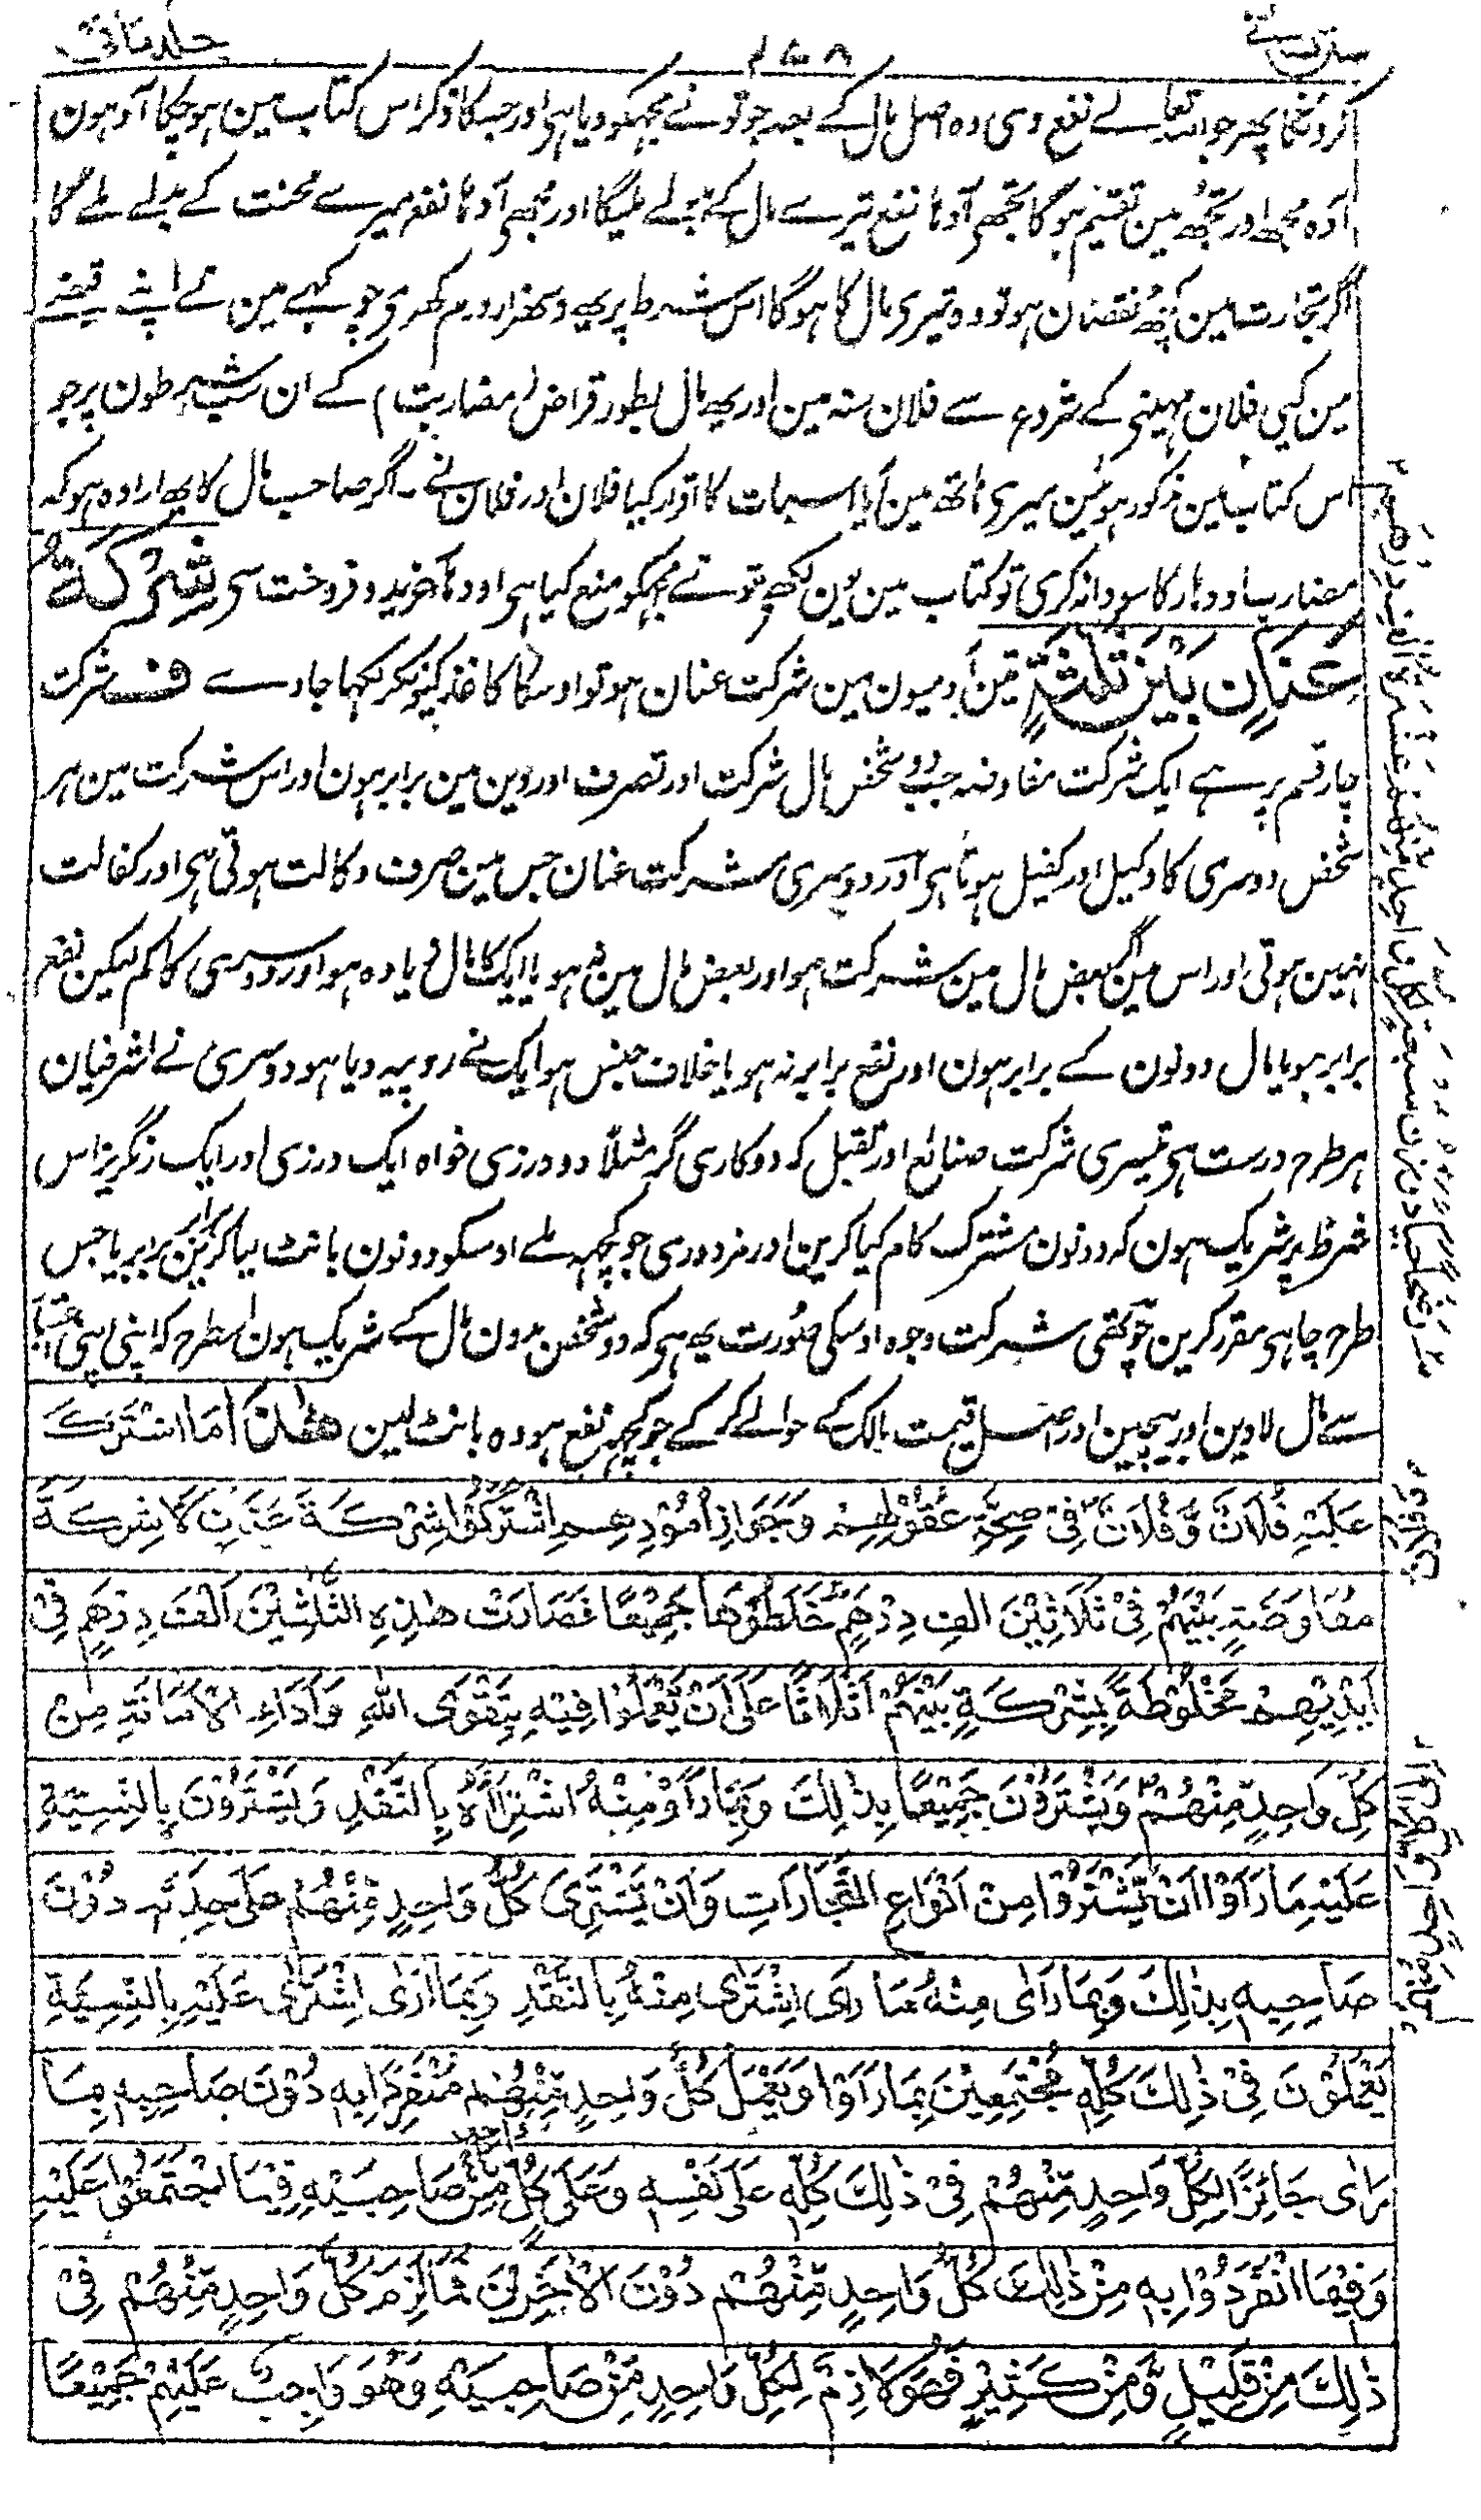 جلد ثانی
کرونگا پھر جو اللہ تعالے نفع دی وہ اصل مال کے بعد جو تو نے مجھکو دیا ہی اور جسکا ذکر اس کتاب مین ہو چکا آدہون
آدہ مجھ اور تجھ مین تقسیم ہوگا تجھی آدہا نفع تیرے مال کے بدلے ملیگا اور مجھی آدہا نفع میرے محنت کے بدلے ملے گا
اگر تجارت مین کچھ نقصان ہو تو وہ تیری مال کا ہوگا اس شرط پر یھ دسہزار درم کھری چوکھے مین نے اپنے قبضے
مین کیی فلان مہینی کے شروع سے فلان سنہ مین اور یھ مال بطور قراض (مضاربت) کے ان سب شرطون پر جو
اس کتاب مین مذکور ہوئین میری ہاتھ مین آیا اسبات کا اقرار کیا فلان اور فلان نے ۔ اگر صاحب مال کا یھ ارادہ ہو کہ
مضارب اودہار کا سودا نہ کری تو کتاب مین یون لکھے تو نے مجھکو منع کیا ہی اودہار خرید و فروخت سی شِرْكَةُ
عِنَانٍ بَيْنَ ثَلٰثَةٍ تین آدمیون مین شرکت عنان ہو تو اوسکا کاغذ کیونکر لکہا جاوے ف شرکت
چار قسم پر ہے ایک شرکت مفاوضہ جب دو شخص مال شرکت اور تصرف اور دین مین برابر ہون اور اس شرکت مین ہر
شخص دوسری کا وکیل اور کفیل ہوتا ہی اور دوسری شرکت عنان جس مین صرف وکالت ہوتی ہی اور کفالت
نہین ہوتی اور اس مین بعض مال مین شرکت ہو اور بعض مال مین نہ ہو یا ایک کا مال زیادہ ہو اور دوسری کا کم لیکن نفع
برابر ہو یا مال دونون کے برابر ہون اور نفع برابر نہ ہو یا خلاف جنس ہو ایک نے روپیہ دیا ہو دوسری نے اشرفیان
ہر طرح درست ہی تیسری شرکت صنائع اور تقبل کہ دو کاری گر مثلاً دو درزی خواہ ایک درزی اور ایک رنگریز اس
شرط پر شریک ہون کہ دونون مشترک کام کیا کرین اور مزدوری جو کچھ ملے اوسکو دونون بانٹ لیا کرین برابر یا جس
طرح چاہی مقرر کرین چوتھی شرکت وجوہ اوسکی صورت یھ ہی کہ دو شخص بدون مال کے شریک ہون اسطرح کہ اپنی اپنی
سے مال لاوین اور بیچین اور اصل قیمت مالک کے حوالے کر کے جو کچھ نفع ہو وہ بانٹ لین هٰذَا مَا اشْتَرَكَ
عَلَيْهِ فُلَانٌ وَّفُلَانٌ فِيْ صِحَّةِ عُقُوْلِهِمْ وَجَوَازِ اُمُوْرِهِمْ اِشْتَرَكُوْا شِرْكَةَ عِنَانٍ لَا شِرْكَةَ
مُفَاوَضَةٍ بَيْنَهُمْ فِيْ ثَلَاثِيْنَ اَلْفِ دِرْهَمٍ خَلَطُوْهَا جَمِيْعًا فَصَارَتْ هٰذِهِ الثَّلٰثِيْنَ اَلْفَ دِرْهَمٍ فِيْ
اَيْدِيْهِمْ مَخْلُوْطَةً بِشِرْكَةٍ بَيْنَهُمْ اَثْلَاثًا عَلٰى اَنْ يَّعْمَلُوْا فِيْهِ بِتَقْوَى اللّٰهِ وَاَدَاءِ الْاَمَانَةِ مِنْ
كُلِّ وَاحِدٍ مِّنْهُمْ وَيَشْتَرُوْنَ جَمِيْعًا بِذٰلِكَ وَبِمَا رَاَوْ مِنْهُ اشْتِرَاءَهُ بِالنَّقْدِ وَيَشْتَرُوْنَ بِالنَّسِيْئَةِ
عَلَيْهِ مَا رَاَوْا اَنْ يَّشْتَرُوْا مِنْ اَنْوَاعِ التِّجَارَاتِ وَاَنْ يَّشْتَرِيَ كُلُّ وَاحِدٍ مِّنْهُمْ عَلٰى حِدَتِهٖ دُوْنَ
صَاحِبِهٖ بِذٰلِكَ وَبِمَا رَاٰى مِنْهُ مَا رَاٰى اِشْتَرٰى مِنْهُ بِالنَّقْدِ وَبِمَا رَاٰى اِشْتَرٰى عَلَيْهِ بِالنَّسِيْئَةِ
يَعْمَلُوْنَ فِيْ ذٰلِكَ كُلِّهٖ مُجْتَمِعِيْنَ بِمَا رَاَوْا وَيَعْمَلُ كُلُّ وَاحِدٍ مِّنْهُمْ مُنْفَرِدًا بِهٖ دُوْنَ صَاحِبِهٖ بِمَا
رَاٰى جَائِزًا لِكُلِّ وَاحِدٍ مِّنْهُمْ فِيْ ذٰلِكَ كُلِّهٖ عَلٰى نَفْسِهٖ وَعَلٰى كُلِّ وَاحِدٍ مِنْ صَاحِبَيْهِ فِيْمَا اجْتَمَعُوْا عَلَيْهِ
وَفِيْمَا انْفَرَدُوْا بِهٖ مِنْ ذٰلِكَ كُلُّ وَاحِدٍ مِّنْهُمْ دُوْنَ الْاٰخَرِيْنَ فَمَا لَزِمَ كُلَّ وَاحِدٍ مِّنْهُمْ فِيْ
ذٰلِكَ مِنْ قَلِيْلٍ وَّمِنْ كَثِيْرٍ فَهُوَ لَازِمٌ لِكُلِّ وَاحِدٍ مِّنْ صَاحِبَيْهِ وَهُوَ وَاجِبٌ عَلَيْهِمْ جَمِيْعًا